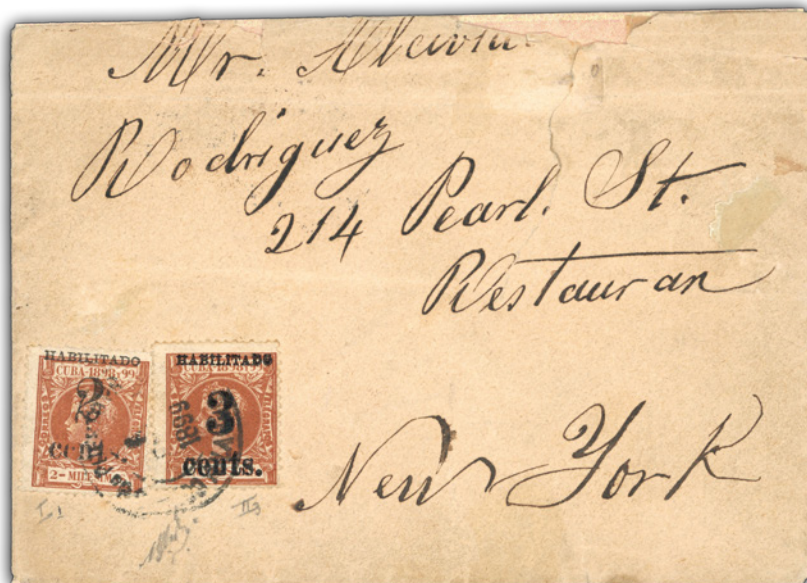 Mr.
Rodriguez
214 Pearl. St.
Restauran
New York
HABILITADO
CUBA-1898 y 99
2
cents.
2-MILESIMAS
HABILITADO
CUBA-1898 y 99
3
cents.
1899
I1
II3